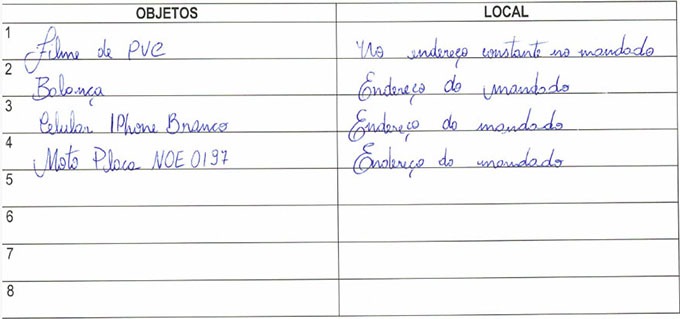 OBJETOS LOCAL
1 Filme de PVC No endereço constante no mandado
2 Balança Endereço do mandado
3 Celular IPhone Branco Endereço do mandado
4 Moto Placa NOE 0197 Endereço do mandado
5
6
7
8